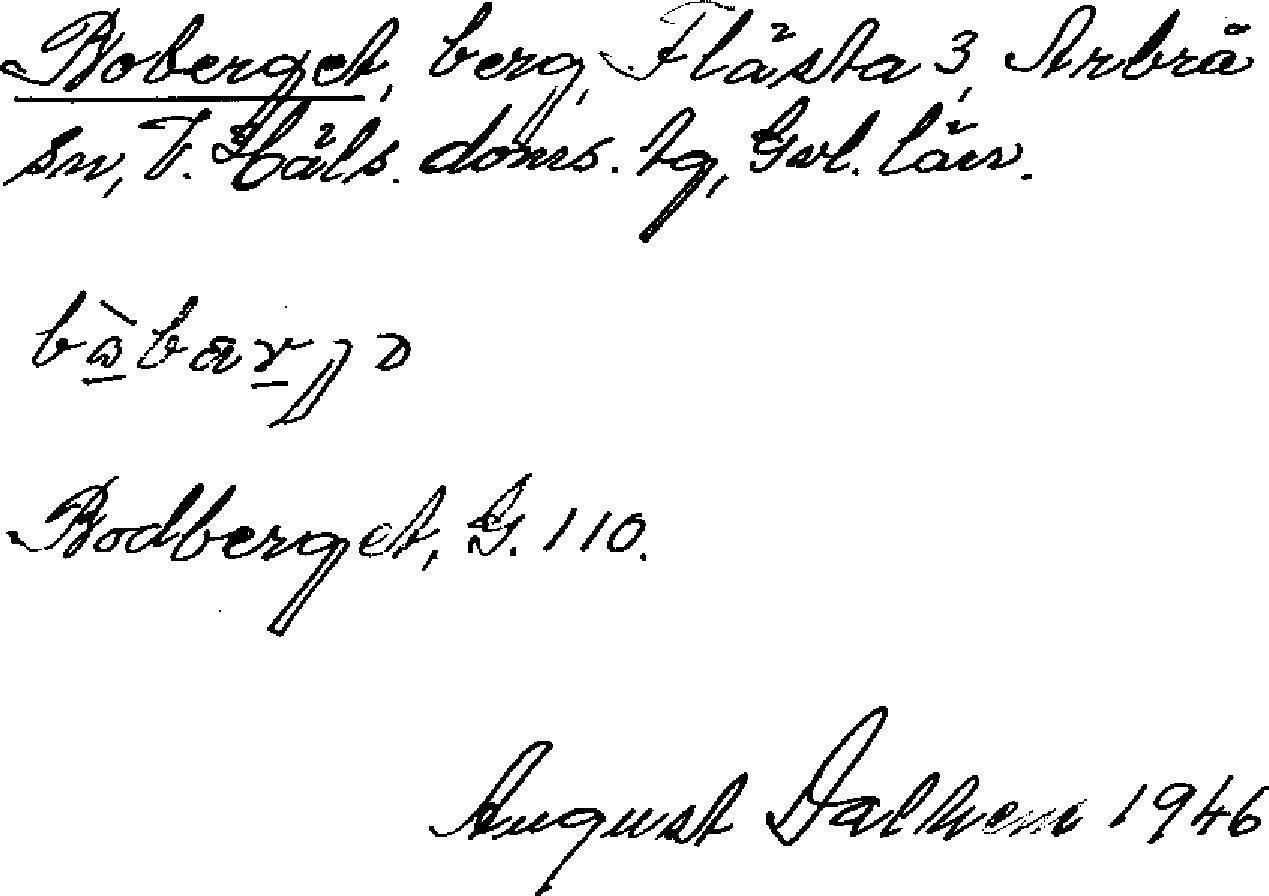 Boberget, berg, Flästa 3, Arbrå
sn, V. Häls. doms. tg, Gvl. län.
Bodberget, G. 110.
August Dalhem 1946